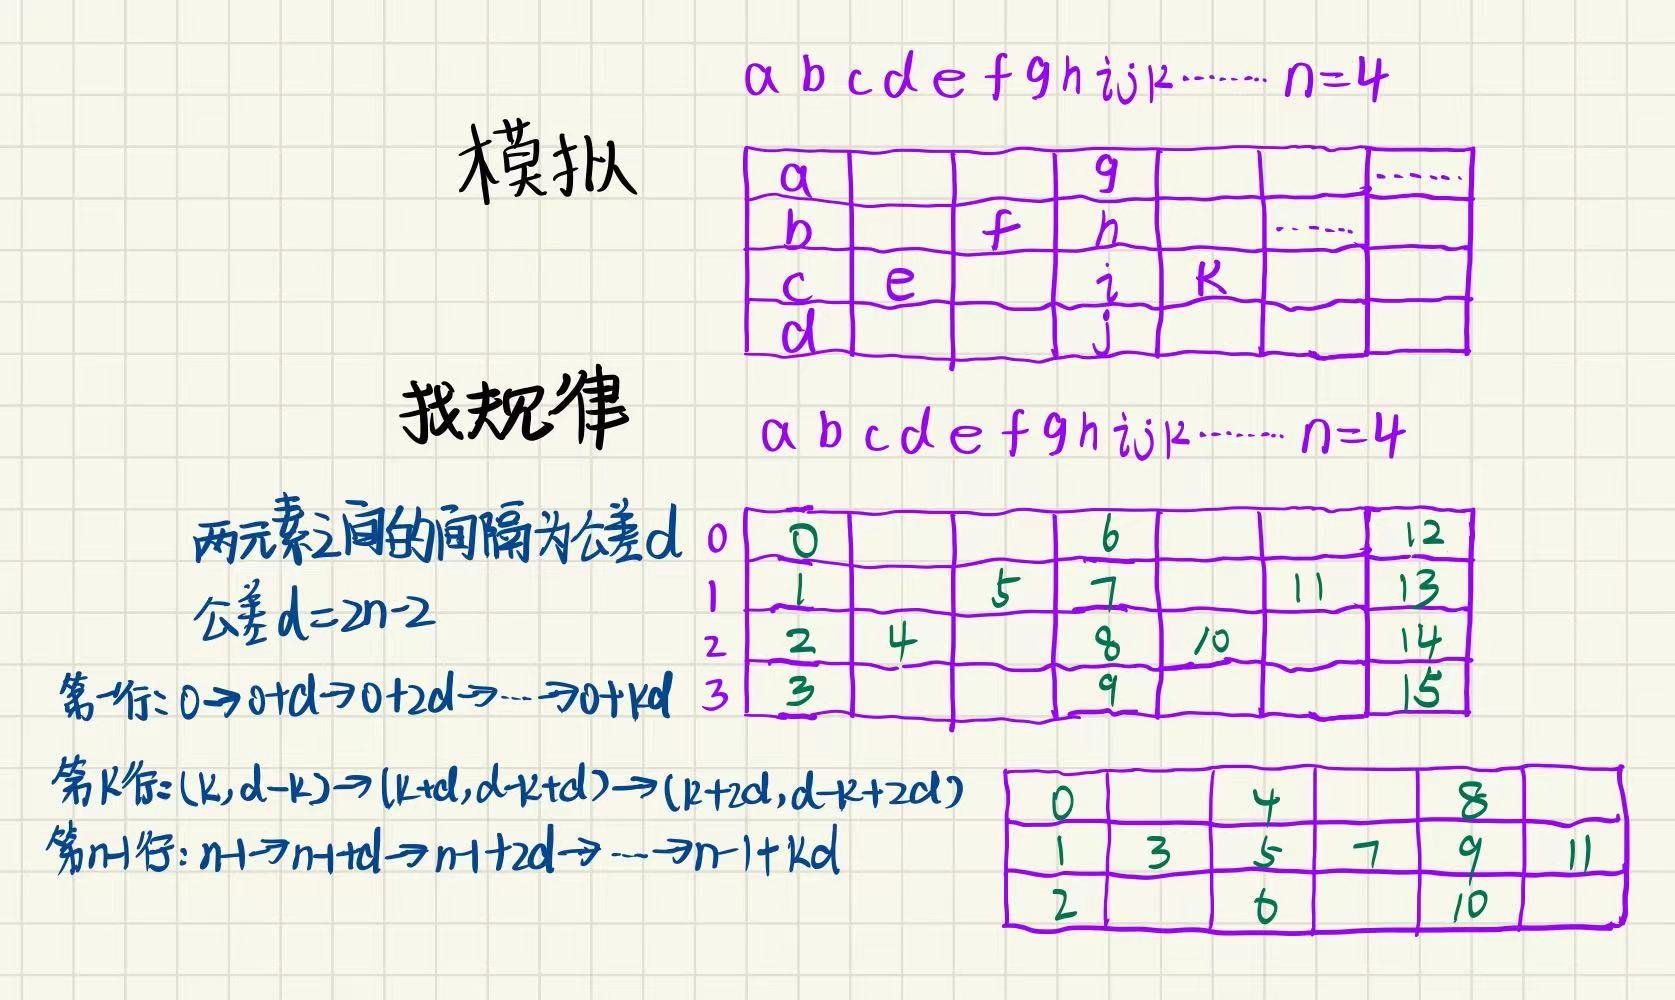 a b c d e f g h i j k ······· n=4
模拟
a g ······
b f h ·····
c e i k
d j
找规律
a b c d e f g h i j k ······· n=4
两元素之间的间隔为公差d
公差d=2n-2
0 0 6 12
1 1 5 7 11 13
2 2 4 8 10 14
3 3 9 15
第一行:0→0+d→0+2d→···→0+kd
第k行:(k,d-k)→(k+d,d-k+d)→(k+2d,d-k+2d)
第n-1行:n-1→n-1+d→n-1+2d→···→n-1+kd
0 4 8
1 3 5 7 9 11
2 6 10